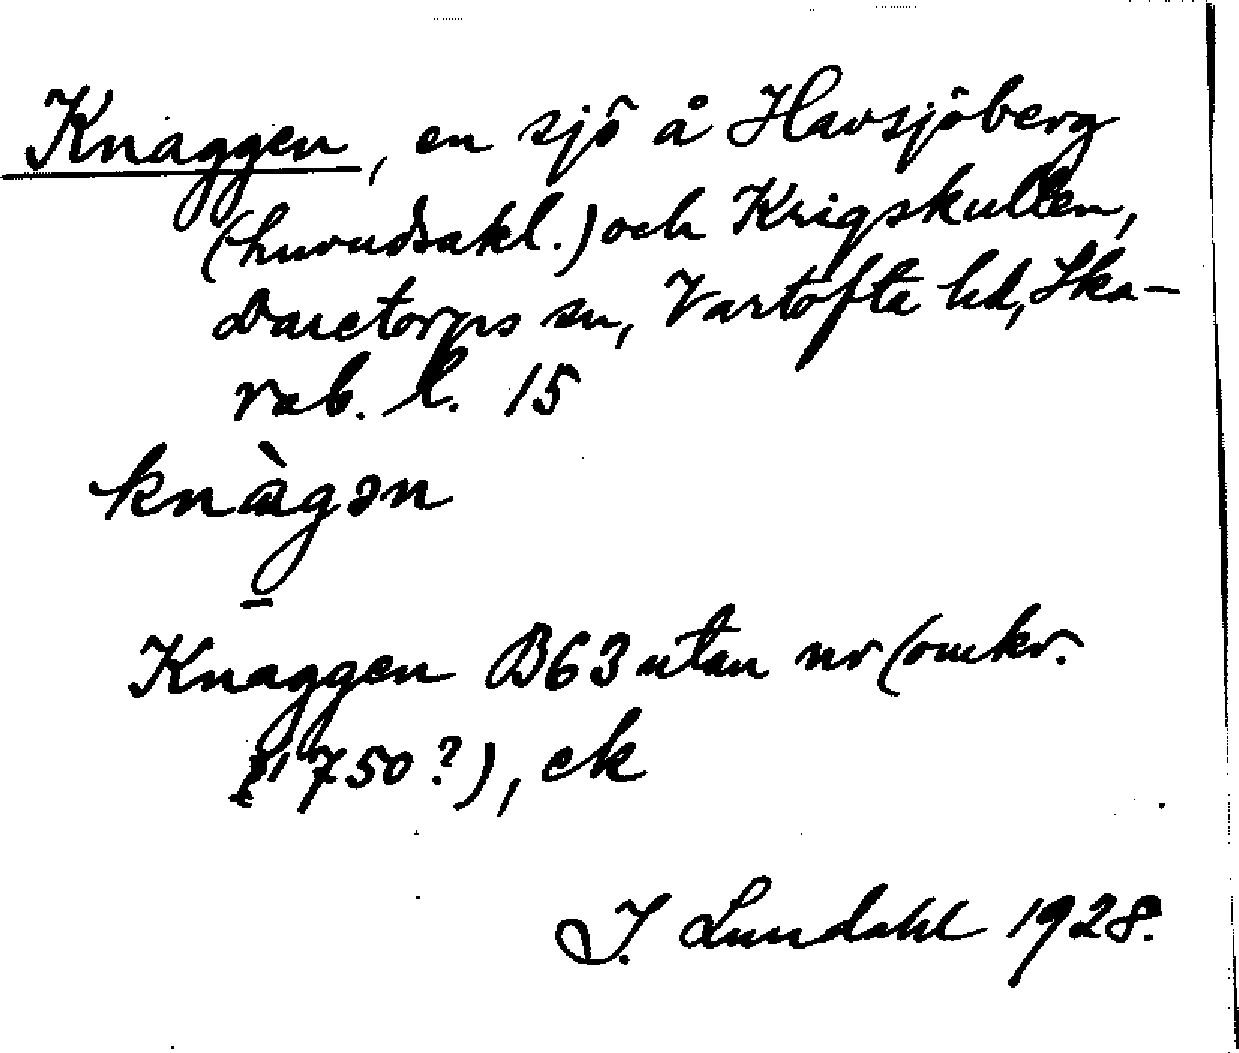 Knaggen, en sjö å Havsjöberg
(huvudsakl.) och Krigskullen,
Daretorps sn, Vartofta hd, Ska-
rab. l. 15
knàgən
Knaggen B63 utan nr (omkr.
1750?), ek
I. Lundahl 1928.